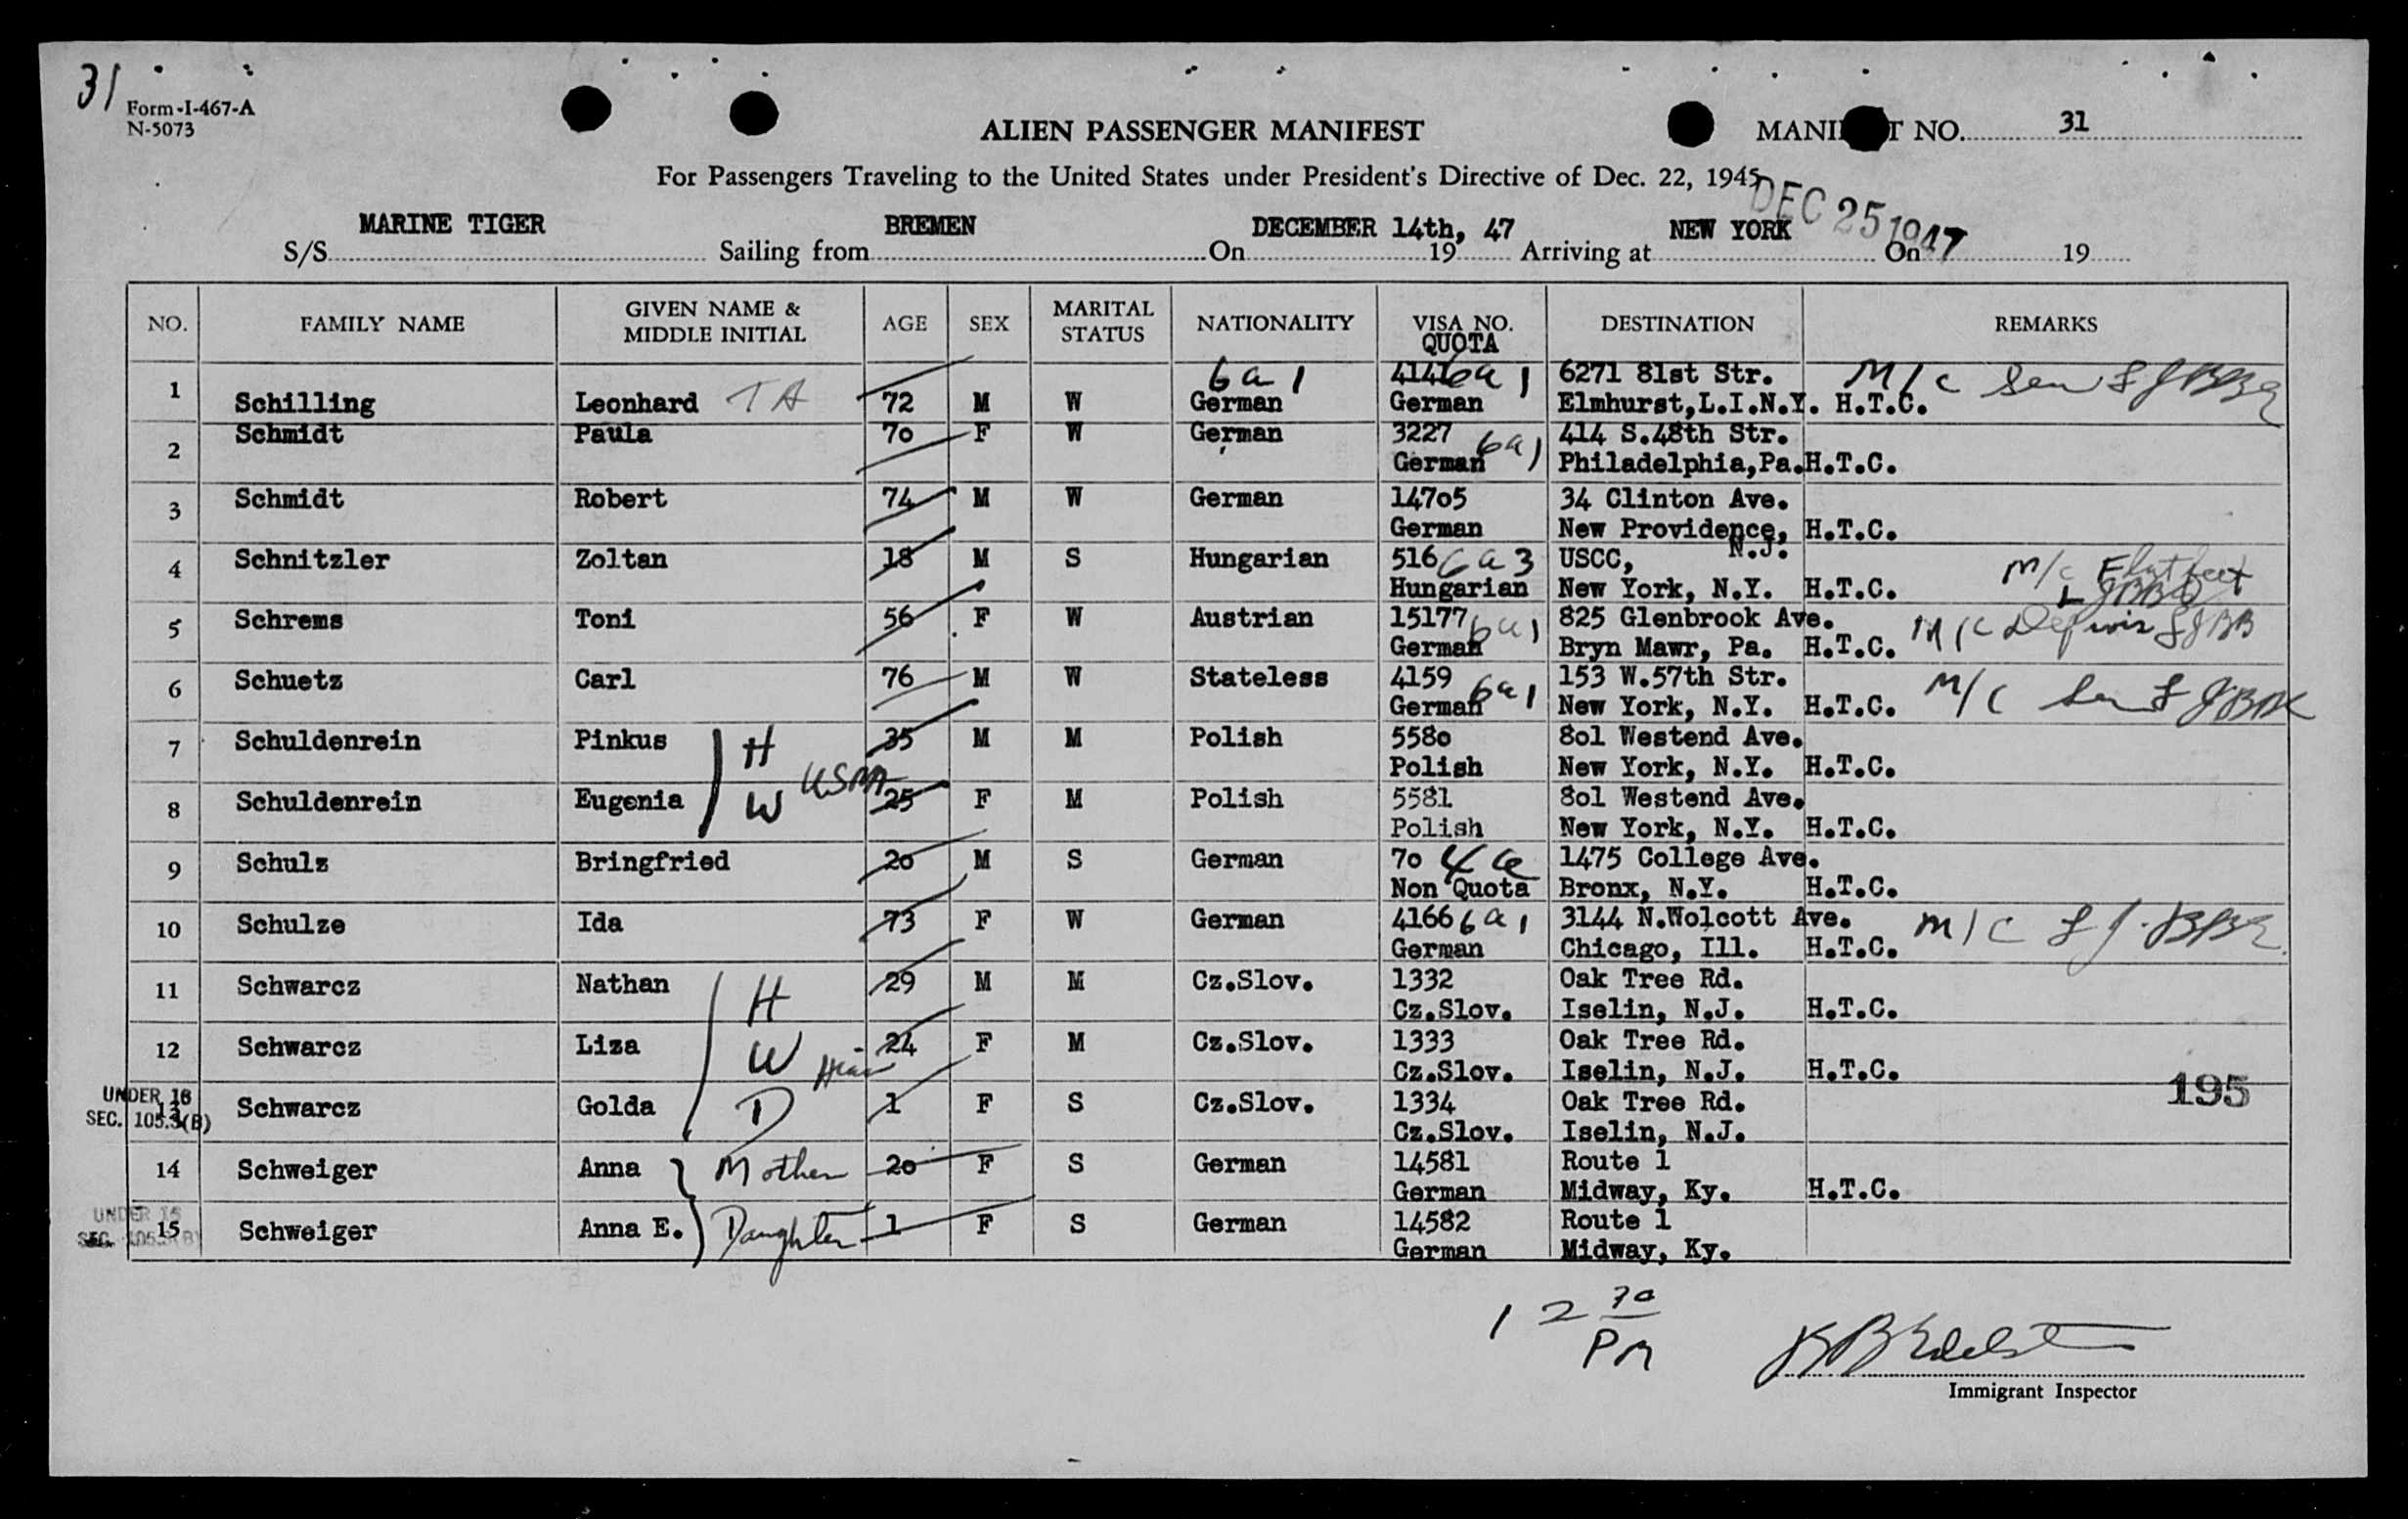 31
Form-I-467-A
N-5073
ALIEN PASSENGER MANIFEST
MANI T NO. 31
For Passengers Traveling to the United States under President's Directive of Dec. 22, 1945
DEC 25 1947
S/S MARINE TIGER Sailing from BREMEN On DECEMBER 14th, 1947 Arriving at NEW YORK On 19
NO. FAMILY NAME GIVEN NAME & MIDDLE INITIAL AGE SEX MARITAL STATUS NATIONALITY VISA NO. QUOTA DESTINATION REMARKS
6a1 4141 6a1 6271 81st Str. M/c Sen
1 Schilling Leonhard TA 72 M W German German Elmhurst,L.I.N.Y. H.T.C.
2 Schmidt Paula 70 F W German 3227 6a1 414 S.48th Str.
German Philadelphia,Pa. H.T.C.
3 Schmidt Robert 74 M W German 14705 34 Clinton Ave.
German New Providence, N.J. H.T.C.
4 Schnitzler Zoltan 18 M S Hungarian 516 6a3 USCC, M/c Flat feet
Hungarian New York, N.Y. H.T.C.
5 Schrems Toni 56 F W Austrian 15177 6a1 825 Glenbrook Ave. M/c
German Bryn Mawr, Pa. H.T.C.
6 Schuetz Carl 76 M W Stateless 4159 6a1 153 W.57th Str. M/c Sen
German New York, N.Y. H.T.C.
7 Schuldenrein Pinkus H 35 M M Polish 5580 801 Westend Ave.
Polish New York, N.Y. H.T.C.
8 Schuldenrein Eugenia W 25 F M Polish 5581 801 Westend Ave.
Polish New York, N.Y. H.T.C.
9 Schulz Bringfried 20 M S German 70 4a 1475 College Ave.
Non Quota Bronx, N.Y. H.T.C.
10 Schulze Ida 73 F W German 4166 6a1 3144 N.Wolcott Ave. M/C
German Chicago, Ill. H.T.C.
11 Schwarcz Nathan H 29 M M Cz.Slov. 1332 Oak Tree Rd.
Cz.Slov. Iselin, N.J. H.T.C.
12 Schwarcz Liza W 24 F M Cz.Slov. 1333 Oak Tree Rd.
Cz.Slov. Iselin, N.J. H.T.C.
195
UNDER 16
SEC. 105.3(B)
13 Schwarcz Golda D 1 F S Cz.Slov. 1334 Oak Tree Rd.
Cz.Slov. Iselin, N.J.
14 Schweiger Anna Mother 20 F S German 14581 Route 1
German Midway, Ky. H.T.C.
UNDER 16
SEC. 105.3(B)
15 Schweiger Anna E. Daughter 1 F S German 14582 Route 1
German Midway, Ky.
12 30
PM
Immigrant Inspector